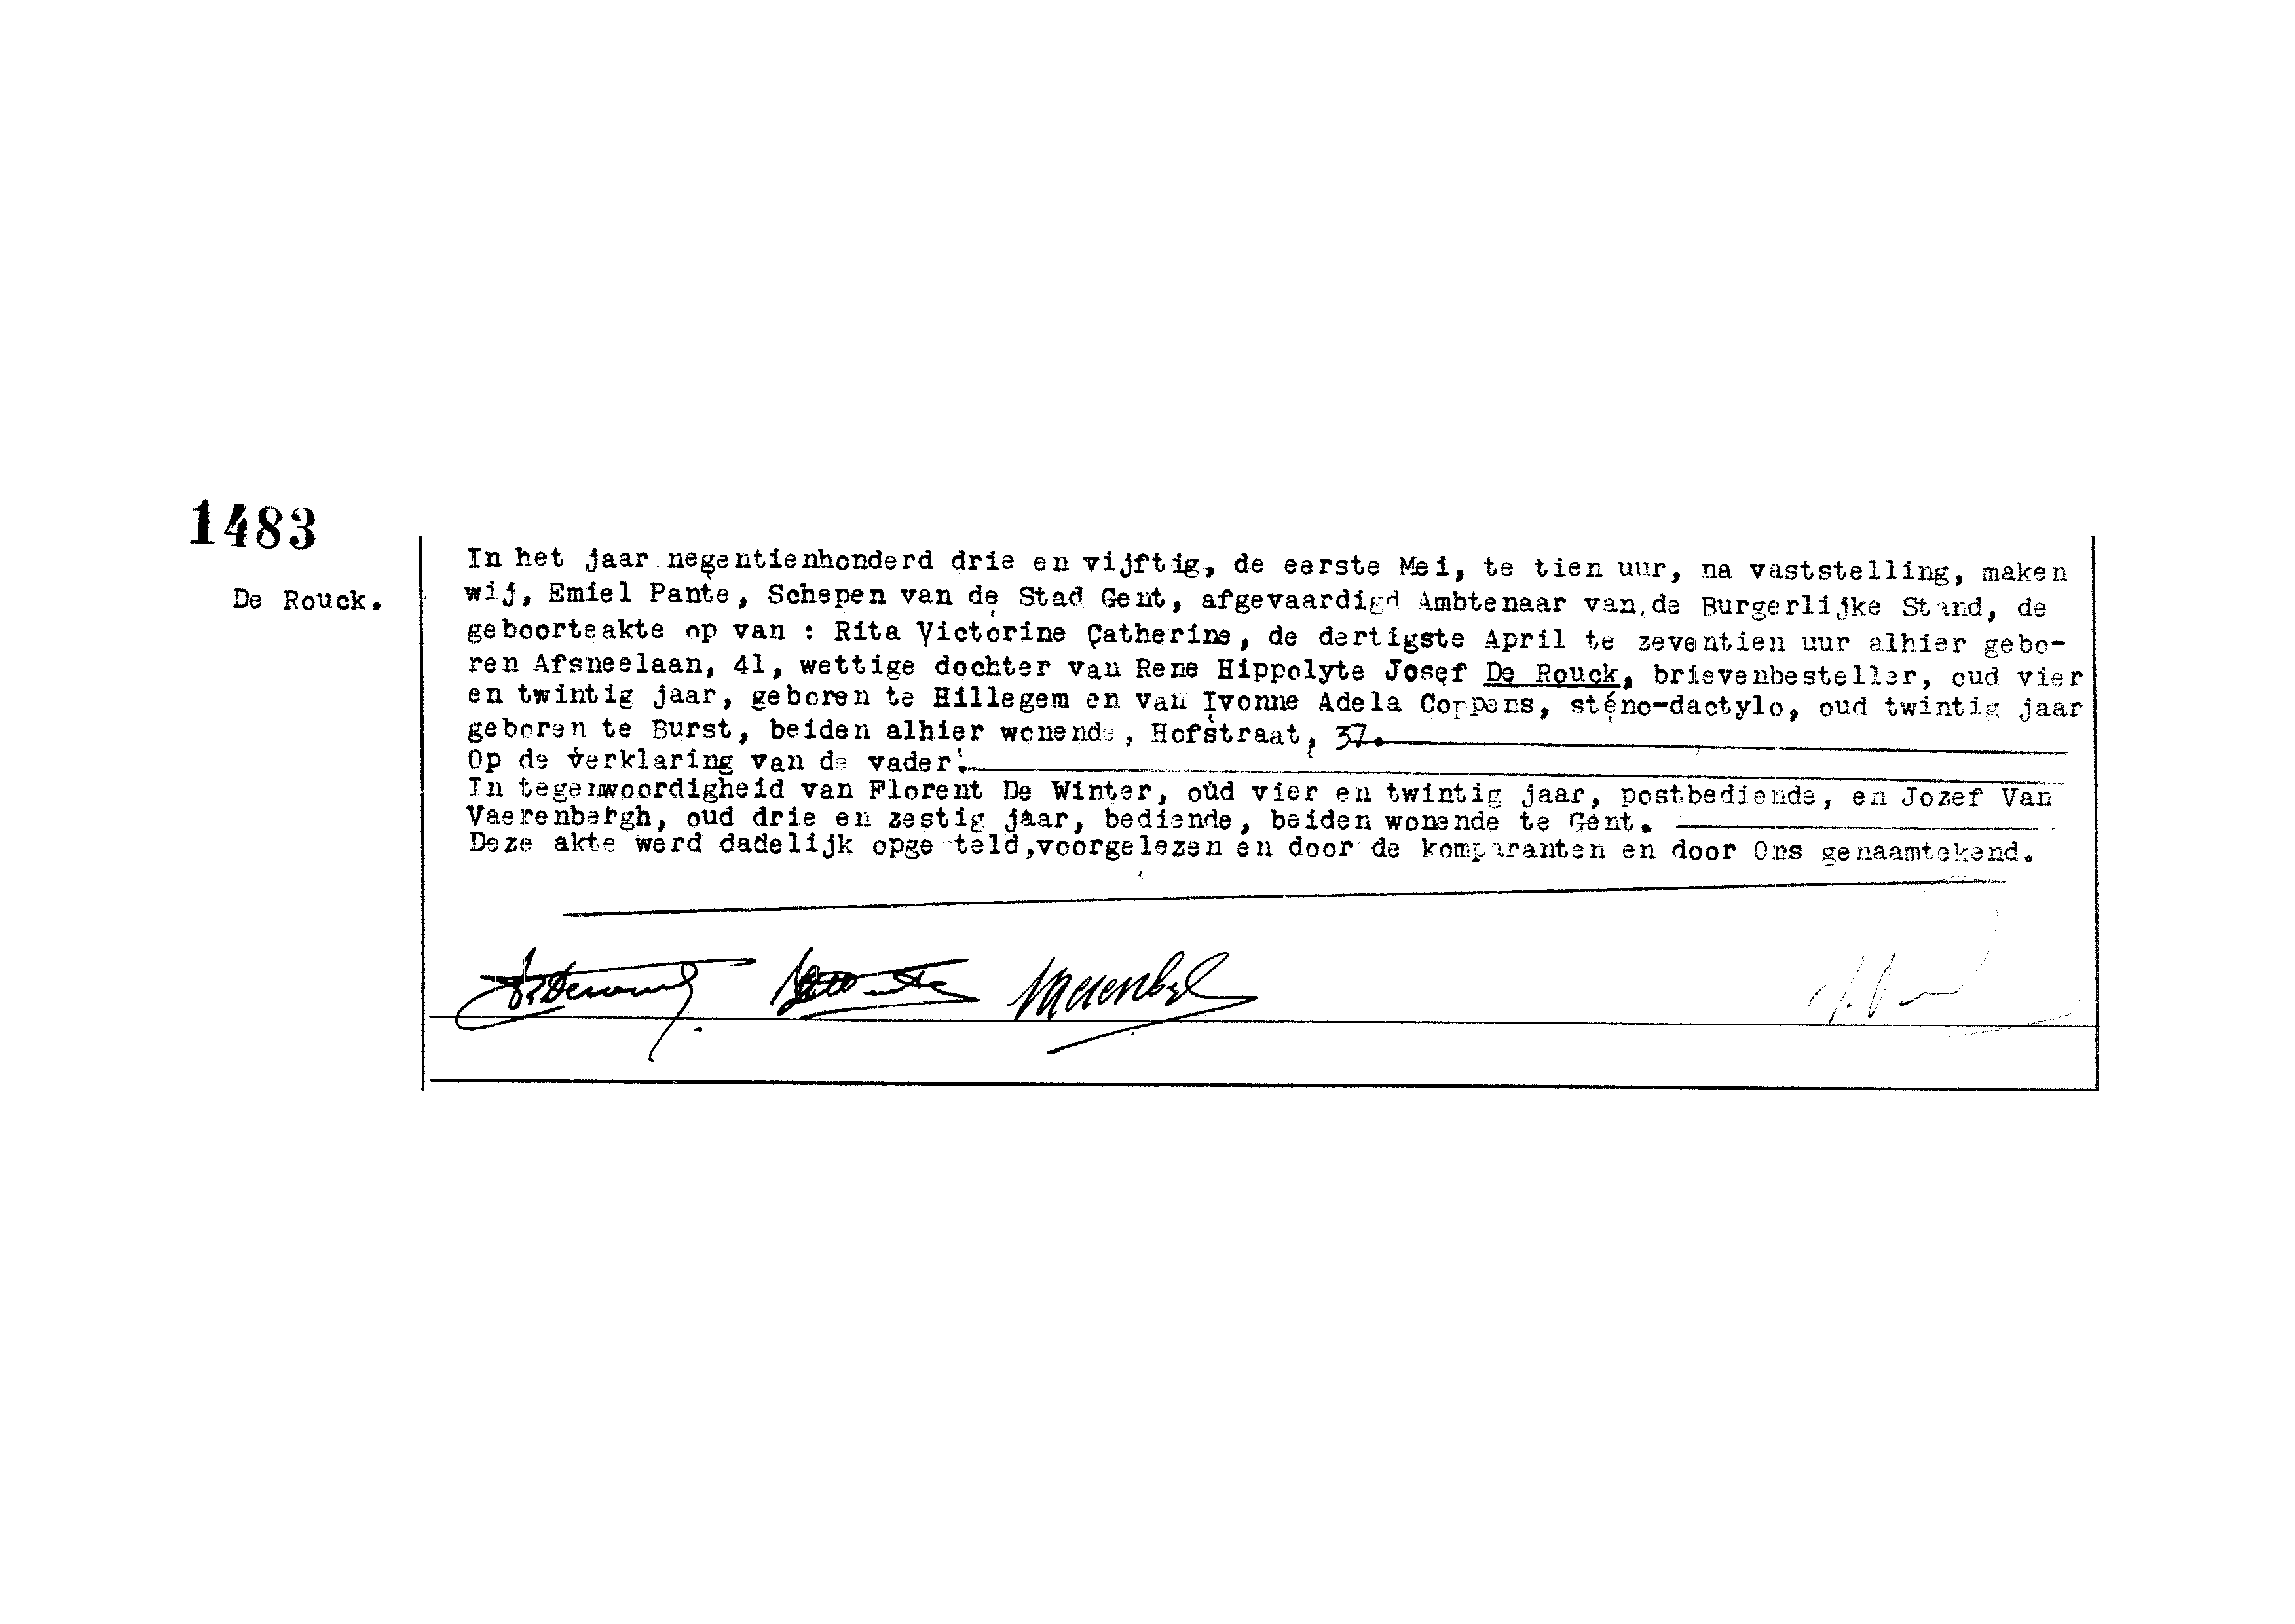 1483
De Rouck.
In het jaar negentienhonderd drie en vijftig, de eerste Mei, te tien uur, na vaststelling, maken
wij, Emiel Pante, Schepen van de Stad Gent, afgevaardigd Ambtenaar van de Burgerlijke Stand, de
geboorteakte op van : Rita Victorine Catherine, de dertigste April te zeventien uur alhier gebo-
ren Afsneelaan, 41, wettige dochter van Rene Hippolyte Josef De Rouck, brievenbesteller, oud vier
en twintig jaar, geboren te Hillegem en van Ivonne Adela Coppens, sténo-dactylo, oud twintig jaar
geboren te Burst, beiden alhier wonende, Hofstraat, 37.
Op de verklaring van de vader.
In tegenwoordigheid van Florent De Winter, oud vier en twintig jaar, postbediende, en Jozef Van
Vaerenbergh, oud drie en zestig jaar, bediende, beiden wonende te Gent.
Deze akte werd dadelijk opge teld,voorgelezen en door de komparanten en door Ons genaamtekend.